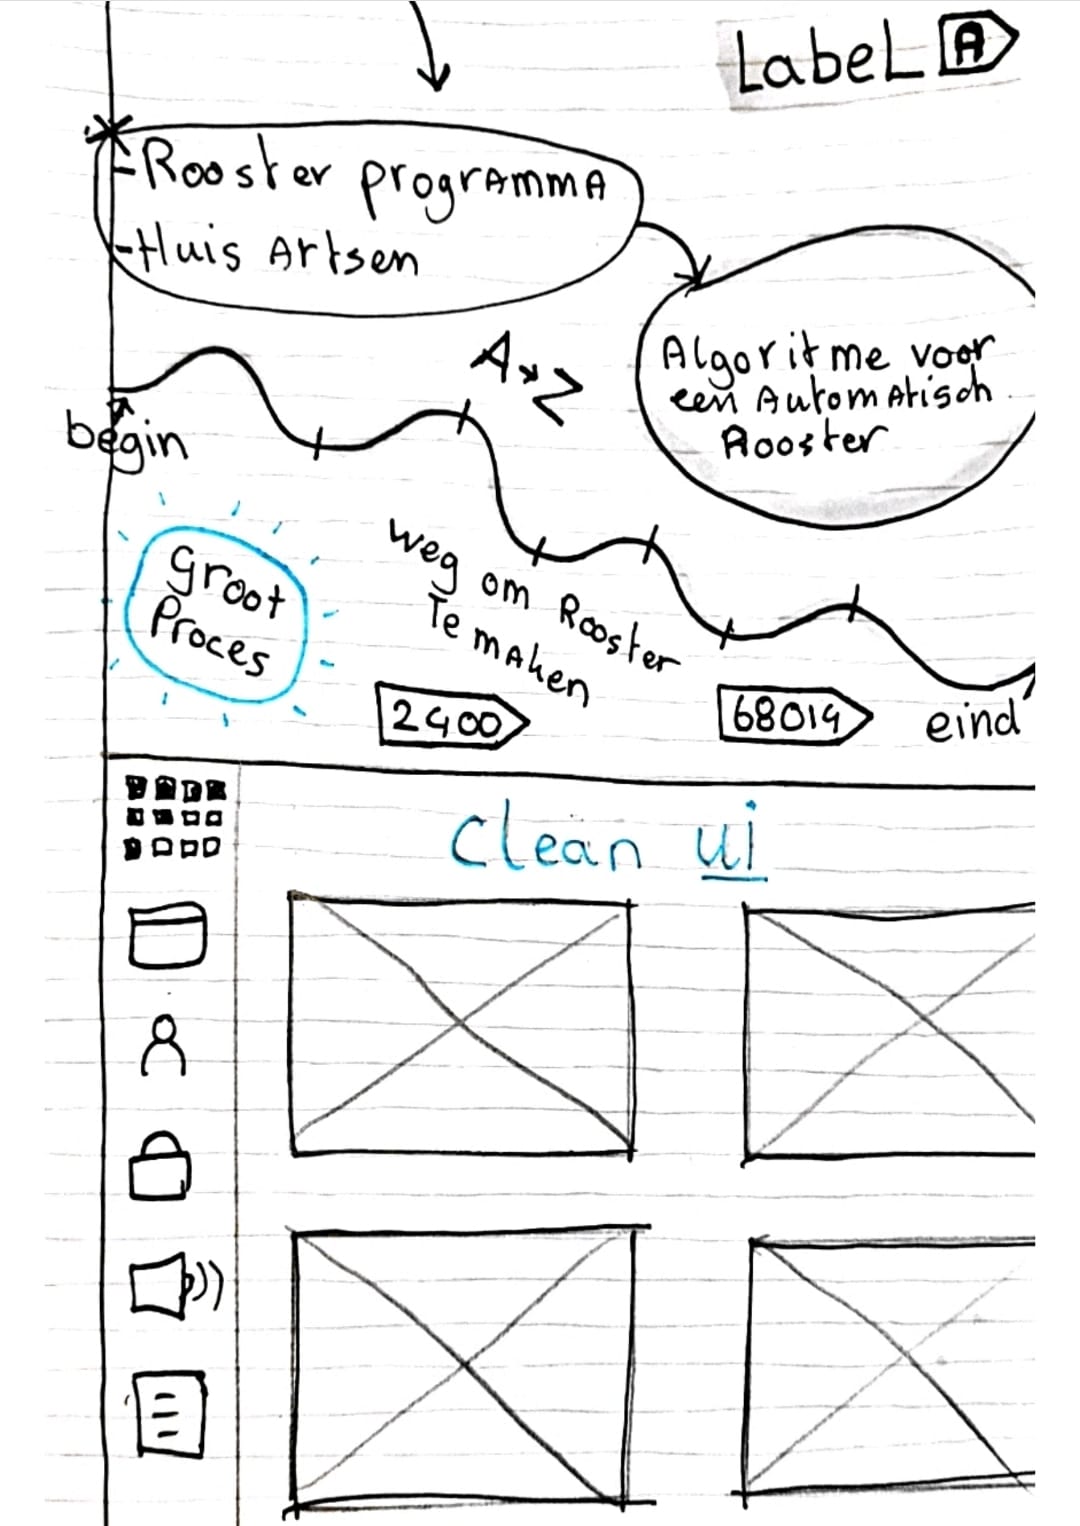 Label A
-Rooster programma
-Huis Artsen
Algoritme voor
een Automatisch
Rooster
A → Z
begin
Groot
Proces
weg om Rooster
Te maken
2400
68014
eind
Clean ui